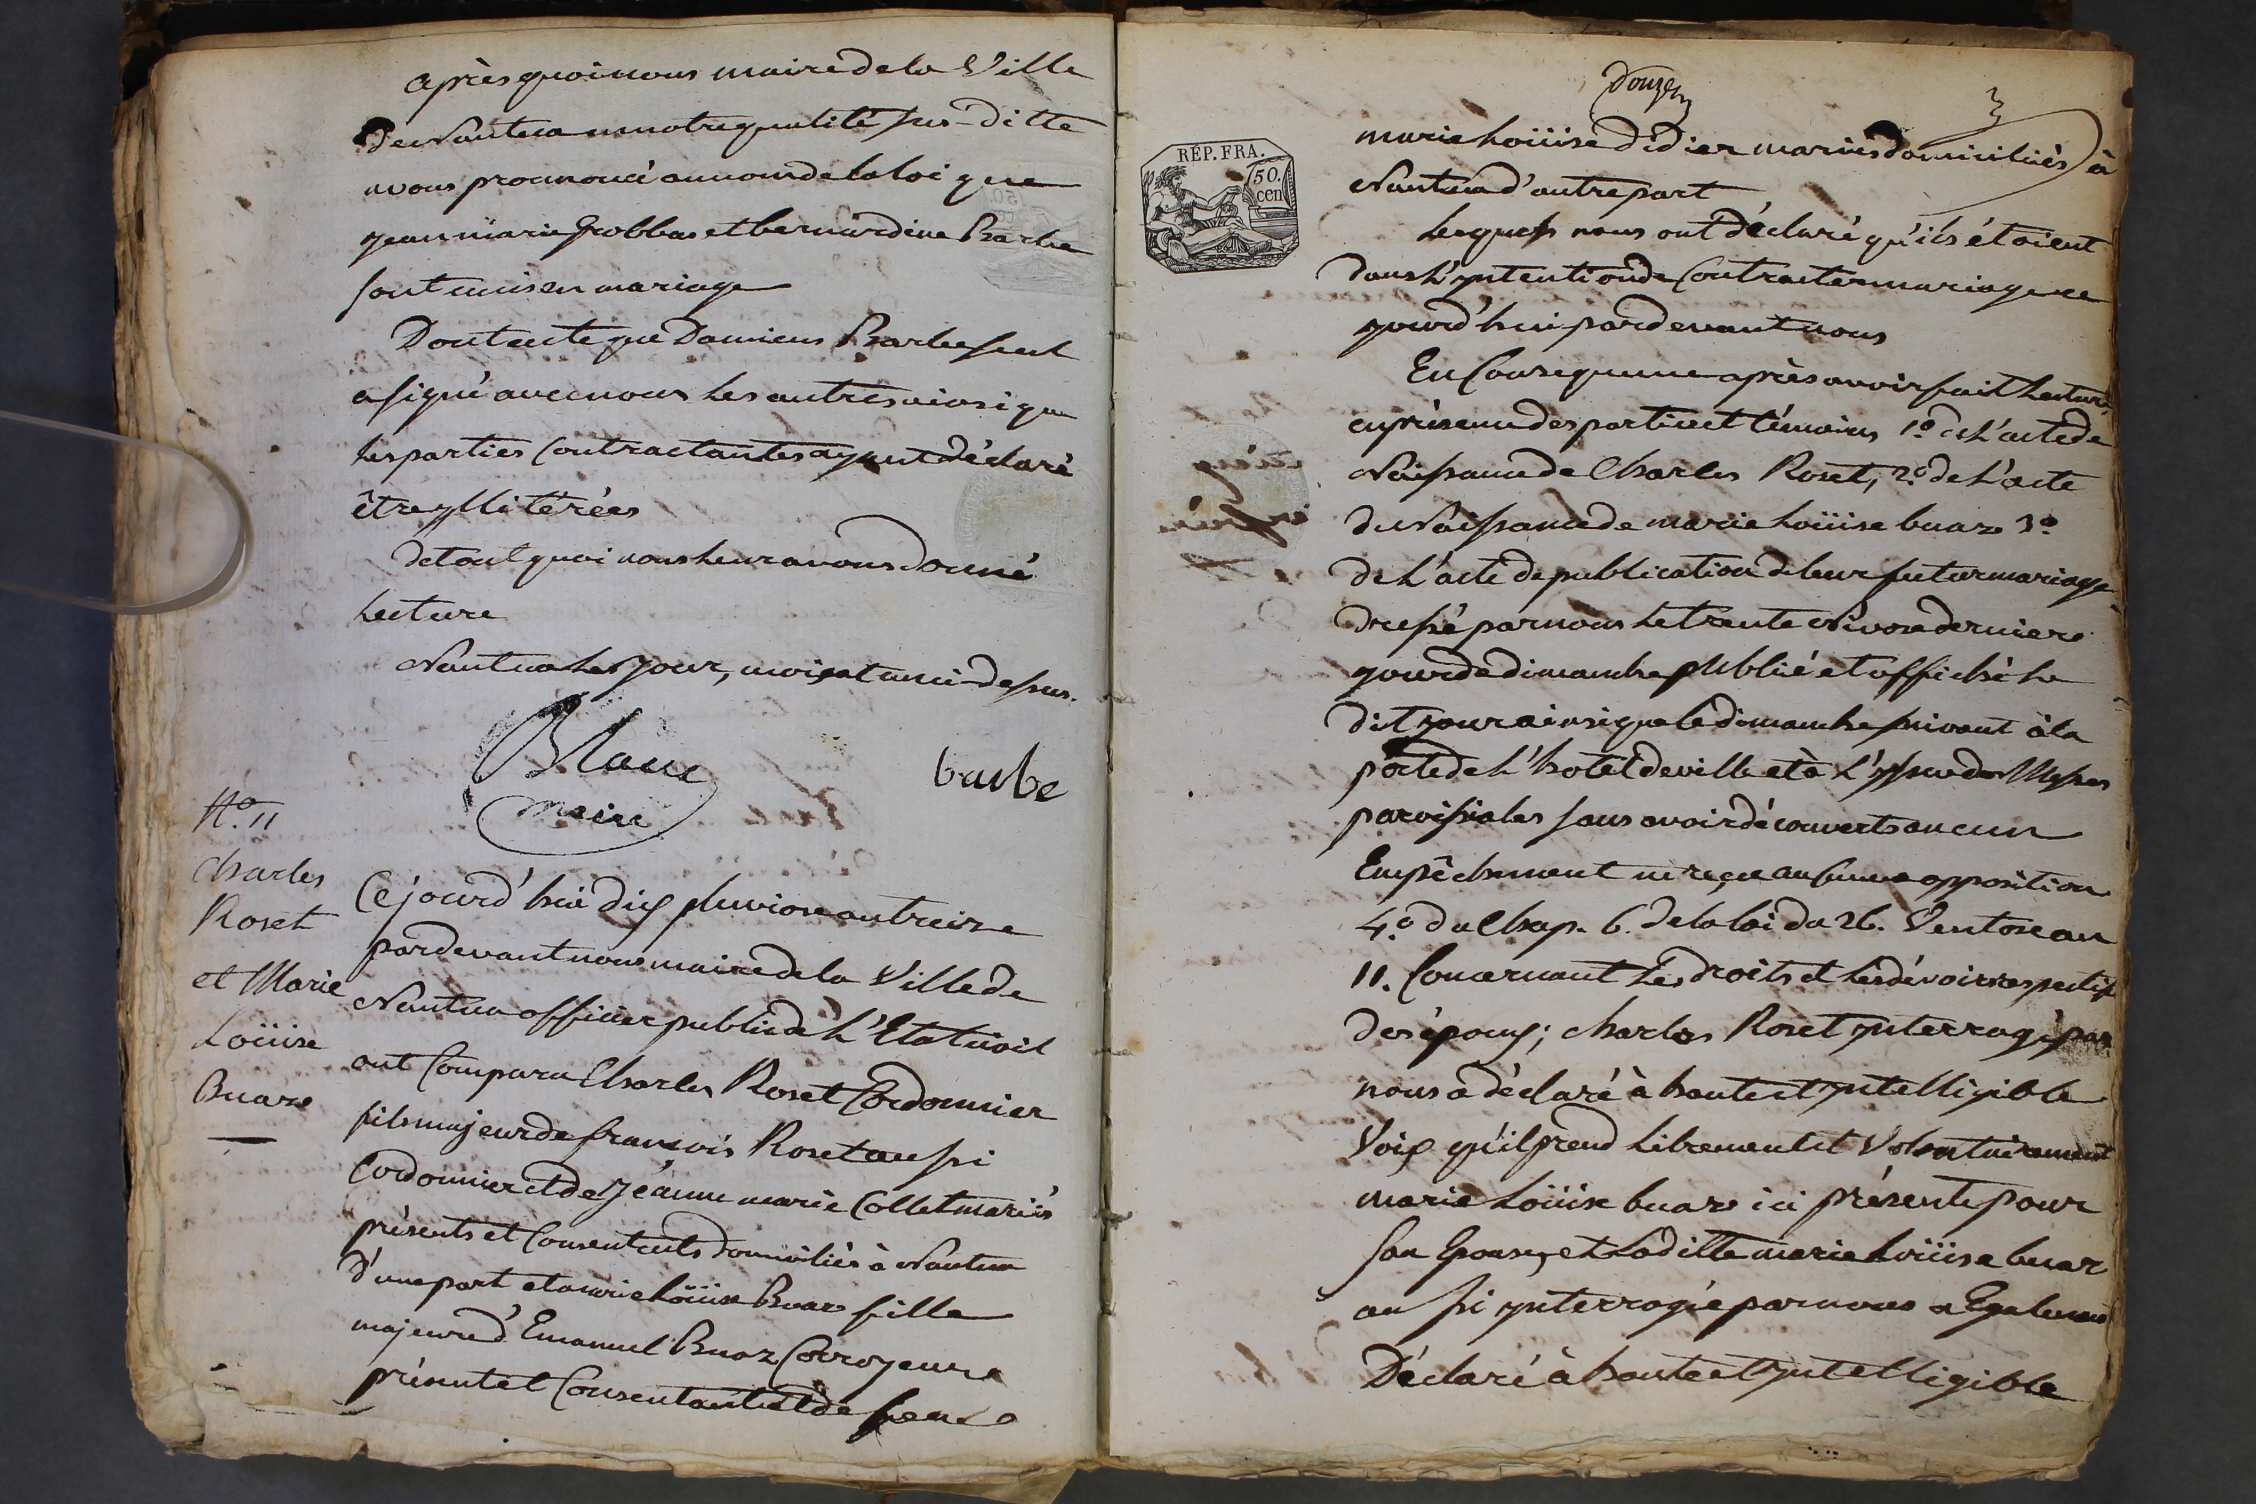 après quoi nous maire de la Ville
de Nantua en notre qualité sus-ditte
avons prononcé au nom de la loi que
jean marie Grobbas et bernardine Barbe
sont unis en mariage
Dont acte que Damiens Barbe seul
a signé avec nous les autres ainsi que
les parties Contractantes ayant déclaré
être yllitérées
de tout quoi nous leur avons donné
Lecture
Nantua les jour, mois et an ci-dessus.
Blanc
maire
barbe
N.o 11
Charles
Roset
et Marie
Loüise
Buaz
Cejourd'hui dix pluviose an treize
pardevant nous maire de la Ville de
Nantua officier public de L'Etat civil
ont Comparu Charles Roset Cordonnier
fils majeur de francois Roset aussi
Cordonnier et de jéanne marie Collet mariés
présents et Consentents domiciliés à Nantua
D'une part et marie Loüise Buaz fille
majeure d'Emanuel Buaz Corroyeur
présent et Consentant et de feue
Douze
RÉP. FRA.
50.
cen
marie Loüise Didier mariés domiciliés à
Nantua d'autre part
Lesquels nous ont déclaré qu'ils étoient
dans L'yntention de Contracter mariage ce
jourd'hui pardevant nous
En Conséquence après avoir fait Lecture
en présence des parties et témoins 1.o de L'acte de
Naissance de Charles Roset, 2.o de L'acte
de Naissance de marie Loüise buaz 3.o
de L'acte de publication de leur futur mariage
dressé par nous Le trente Nivose dernier
jour de dimanche publié et affiché Le
dit jour ainsi que le dimanche suivant à la
porte de L'hotel de ville et à L'yssue des Messes
paroissiales sans avoir découverts aucun
Empêchement ni reçu aucune opposition
4.o du Chap. 6. de la loi du 26. Ventose an
11. Concernant Les droits et Les dévoirs respectifs
des époux; charles Roset ynterrogé par
nous a déclaré à haute et yntelligible
Voix qu'il prend Librement et Volontairement
marie Loüise buaz ici présente pour
son Epouse, et Laditte marie Loüise buaz
aussi ynterrogée par nous a Egalement
Déclaré à haute et yntelligible